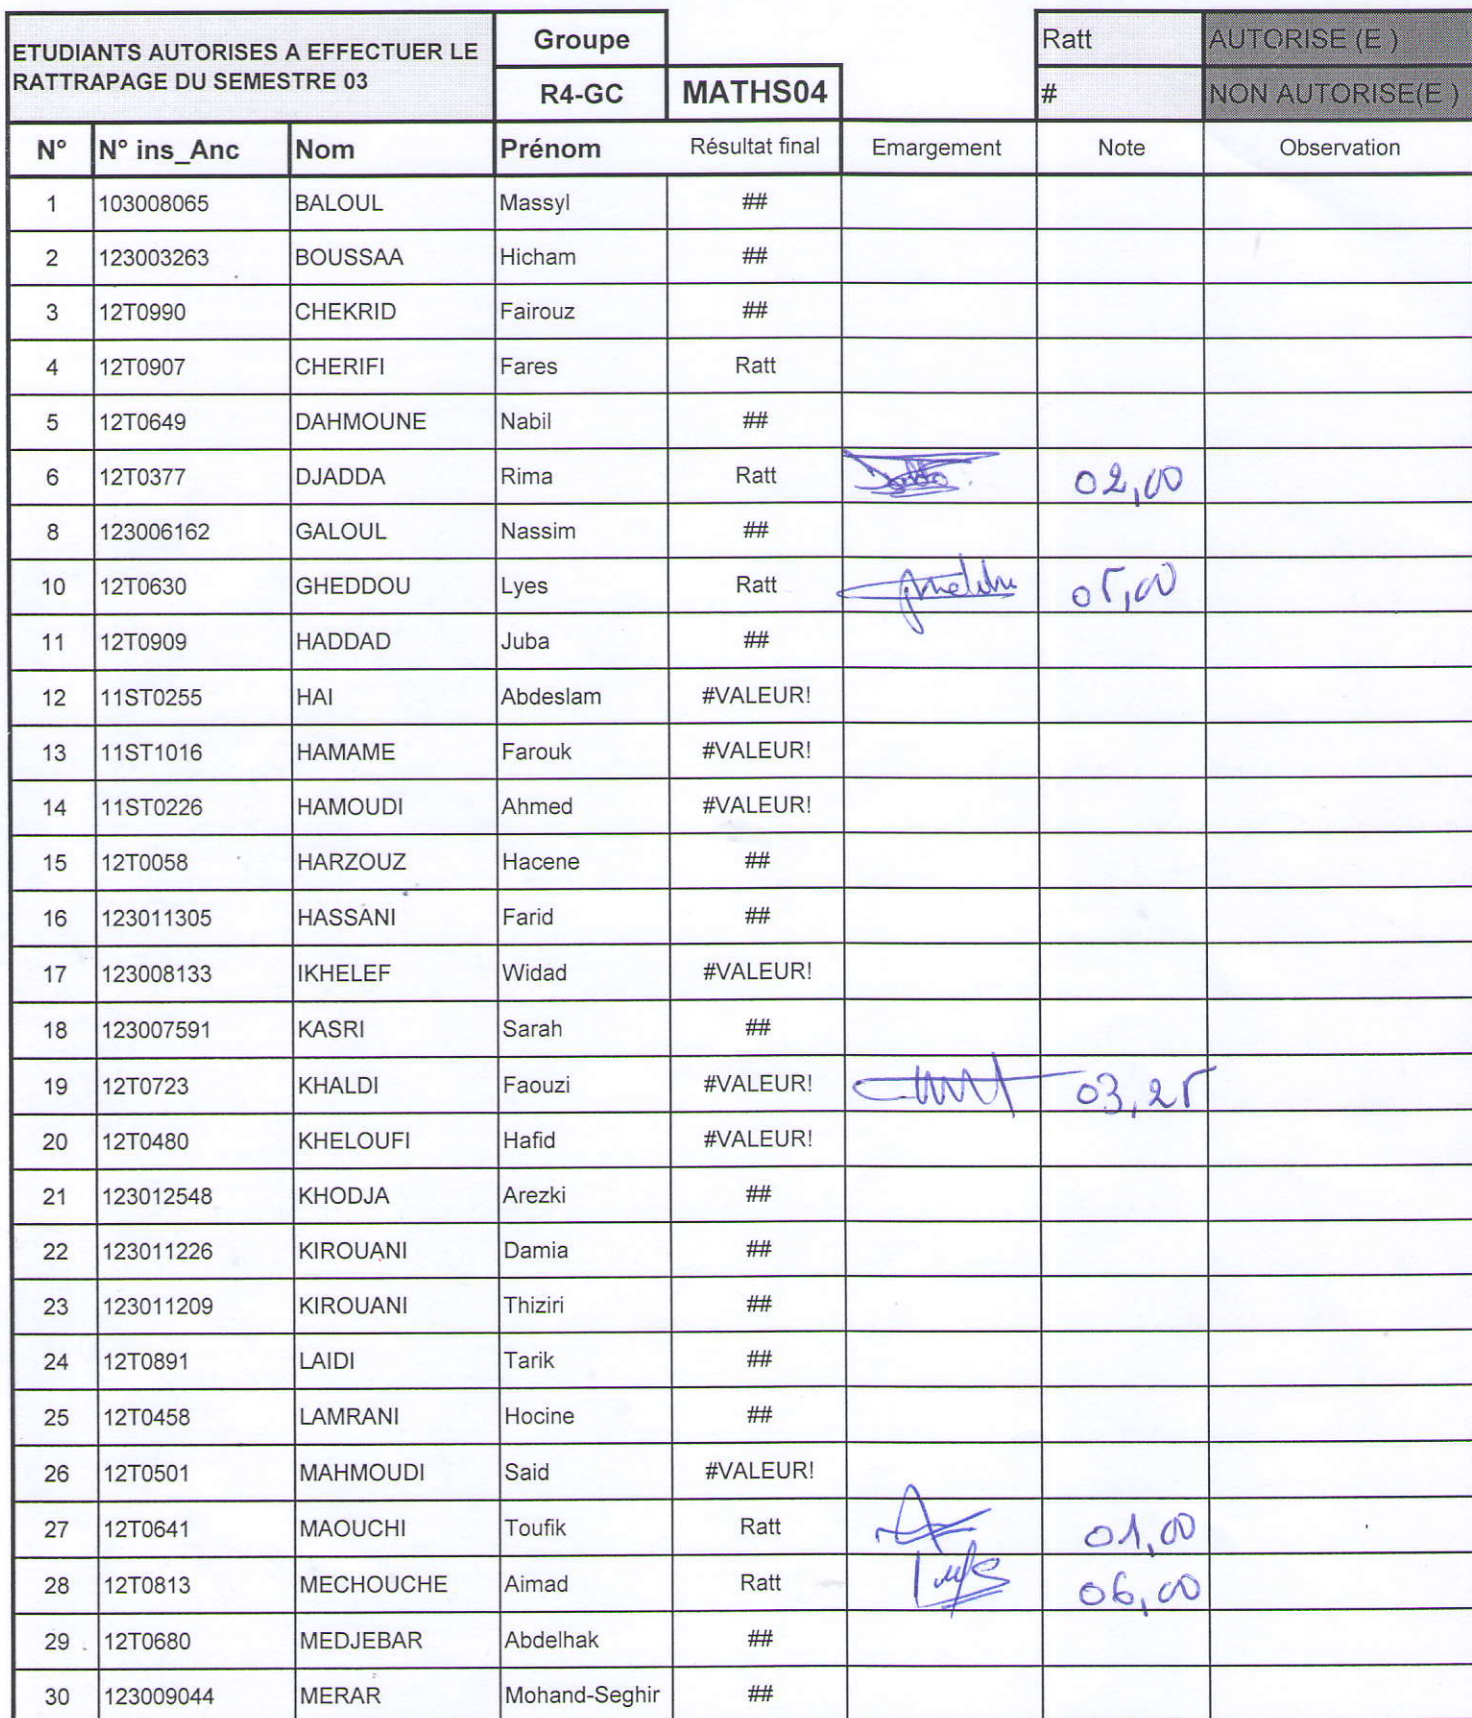 ETUDIANTS AUTORISES A EFFECTUER LE RATTRAPAGE DU SEMESTRE 03 Groupe R4-GC MATHS04
Ratt AUTORISE (E )
# NON AUTORISE(E )
N° N° ins_Anc Nom Prénom Résultat final Emargement Note Observation
1 103008065 BALOUL Massyl ##
2 123003263 BOUSSAA Hicham ##
3 12T0990 CHEKRID Fairouz ##
4 12T0907 CHERIFI Fares Ratt
5 12T0649 DAHMOUNE Nabil ##
6 12T0377 DJADDA Rima Ratt 02,00
8 123006162 GALOUL Nassim ##
10 12T0630 GHEDDOU Lyes Ratt 05,00
11 12T0909 HADDAD Juba ##
12 11ST0255 HAI Abdeslam #VALEUR!
13 11ST1016 HAMAME Farouk #VALEUR!
14 11ST0226 HAMOUDI Ahmed #VALEUR!
15 12T0058 HARZOUZ Hacene ##
16 123011305 HASSANI Farid ##
17 123008133 IKHELEF Widad #VALEUR!
18 123007591 KASRI Sarah ##
19 12T0723 KHALDI Faouzi #VALEUR! 03,25
20 12T0480 KHELOUFI Hafid #VALEUR!
21 123012548 KHODJA Arezki ##
22 123011226 KIROUANI Damia ##
23 123011209 KIROUANI Thiziri ##
24 12T0891 LAIDI Tarik ##
25 12T0458 LAMRANI Hocine ##
26 12T0501 MAHMOUDI Said #VALEUR!
27 12T0641 MAOUCHI Toufik Ratt 01,00
28 12T0813 MECHOUCHE Aimad Ratt 06,00
29 12T0680 MEDJEBAR Abdelhak ##
30 123009044 MERAR Mohand-Seghir ##